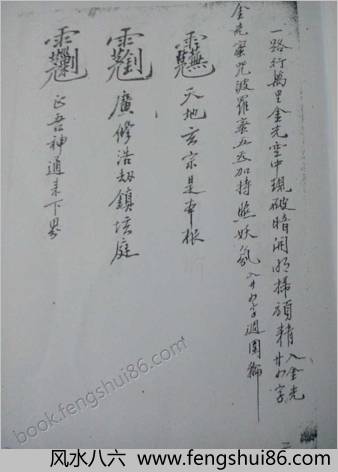 一路行萬里金光空中現破暗開明掃頑精 入金光
金光蜜咒波羅蜜五天加持照妖氣
天地玄宗是本根
廣修浩劫鎮壇庭
吾神通來下界
book.fengshui86.com
风水八六 www.fengshui86.com